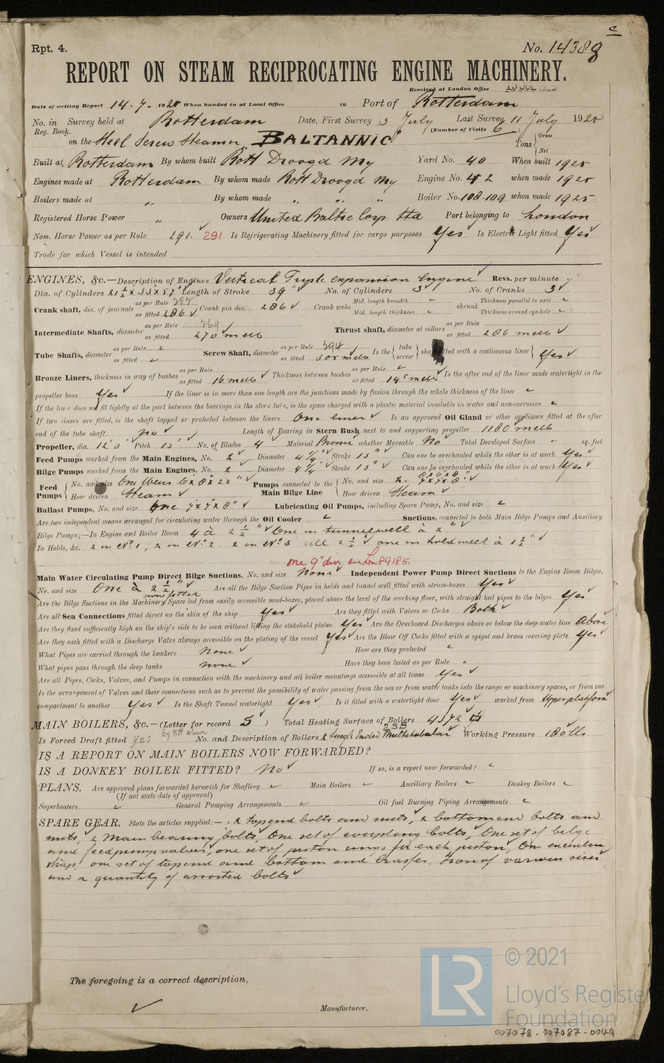 Rpt. 4. No. 14388
REPORT ON STEAM RECIPROCATING ENGINE MACHINERY.
Received at London Office
Date of writing Report 14.7.1925 When handed in at Local Office 19 Port of Rotterdam
No. in Survey held at Rotterdam Date, First Survey 3 July Last Survey 11 July 1925
Reg. Book. (Number of Visits 6
on the Steel Screw Steamer BALTANNIC Tons Gross Net
Built at Rotterdam By whom built Rott Droogd My Yard No. 40 When built 1925
Engines made at Rotterdam By whom made Rott Droogd My Engine No. 42 when made 1925
Boilers made at " By whom made " " " Boiler No. 108.109 when made 1925
Registered Horse Power Owners United Baltic Corp. Ltd Port belonging to London
Nom. Horse Power as per Rule 291. 291. Is Refrigerating Machinery fitted for cargo purposes Yes Is Electric Light fitted Yes
Trade for which Vessel is intended
ENGINES, &c.—Description of Engines Vertical Triple expansion Engine Revs. per minute
Dia. of Cylinders Length of Stroke 39 No. of Cylinders 3 No. of Cranks 3
Crank shaft, dia. of journals as per Rule as fitted 286 Crank pin dia. 286 Crank webs Mid. length breadth Mid. length thickness shrunk Thickness parallel to axis Thickness around eye-hole
Intermediate Shafts, diameter as per Rule 269 as fitted 270 mells Thrust shaft, diameter at collars as per Rule as fitted 286 mells
Tube Shafts, diameter as per Rule as fitted Screw Shaft, diameter as per Rule as fitted Is the tube screw shaft fitted with a continuous liner Yes
Bronze Liners, thickness in way of bushes as per Rule as fitted 16 mells Thickness between bushes as per Rule as fitted 14 mells Is the after end of the liner made watertight in the
propeller boss Yes If the liner is in more than one length are the junctions made by fusion through the whole thickness of the liner
If the liner does not fit tightly at the part between the bearings in the stern tube, is the space charged with a plastic material insoluble in water and non-corrosive
If two liners are fitted, is the shaft lapped or protected between the liners One liner Is an approved Oil Gland or other appliance fitted at the after
end of the tube shaft no Length of Bearing in Stern Bush next to and supporting propeller 1180 mells
Propeller, dia. Pitch No. of Blades 4 Material Bronze whether Moveable No Total Developed Surface sq. feet
Feed Pumps worked from the Main Engines, No. 2 Diameter Stroke Can one be overhauled while the other is at work Yes
Bilge Pumps worked from the Main Engines, No. 2 Diameter Stroke Can one be overhauled while the other is at work Yes
Feed Pumps No. and size How driven Steam Pumps connected to the Main Bilge Line No. and size How driven Steam
Ballast Pumps, No. and size One 7x7x8" Lubricating Oil Pumps, including Spare Pump, No. and size
Are two independent means arranged for circulating water through the Oil Cooler Suctions, connected to both Main Bilge Pumps and Auxiliary
Bilge Pumps;—In Engine and Boiler Room 4 à 2½" One in tunnelwell à
In Holds, &c. 2 in No 1, 2 in No 2. 2 in No 3 all 2½" one in holdwell à
Main Water Circulating Pump Direct Bilge Suctions, No. and size None Independent Power Pump Direct Suctions to the Engine Room Bilges,
No. and size One à Are all the Bilge Suction Pipes in holds and tunnel well fitted with strum-boxes Yes
Are the Bilge Suctions in the Machinery Space led from easily accessible mud-boxes, placed above the level of the working floor, with straight tail pipes to the bilges Yes
Are all Sea Connections fitted direct on the skin of the ship Yes Are they fitted with Valves or Cocks Both
Are they fixed sufficiently high on the ship's side to be seen without lifting the stokehold plates Yes Are the Overboard Discharges above or below the deep water line Above
Are they each fitted with a Discharge Valve always accessible on the plating of the vessel Yes Are the Blow Off Cocks fitted with a spigot and brass covering plate Yes
What Pipes are carried through the bunkers None How are they protected
What pipes pass through the deep tanks none Have they been tested as per Rule
Are all Pipes, Cocks, Valves, and Pumps in connection with the machinery and all boiler mountings accessible at all times Yes
Is the arrangement of Valves and their connections such as to prevent the possibility of water passing from the sea or from water tanks into the cargo or machinery spaces, or from one
compartment to another Yes Is the Shaft Tunnel watertight Yes Is it fitted with a watertight door Yes worked from Upper platform
MAIN BOILERS, &c.—(Letter for record S) Total Heating Surface of Boilers 4572
Is Forced Draft fitted Yes No. and Description of Boilers 2 Single Ended Multitubular Working Pressure 180 lbs
IS A REPORT ON MAIN BOILERS NOW FORWARDED?
IS A DONKEY BOILER FITTED? No If so, is a report now forwarded?
PLANS. Are approved plans forwarded herewith for Shafting Main Boilers Auxiliary Boilers Donkey Boilers
(If not state date of approval)
Superheaters General Pumping Arrangements Oil fuel Burning Piping Arrangements
SPARE GEAR. State the articles supplied:— 2 topend bolts and nuts, 2 bottomend bolts and
nuts, 2 main bearing bolts, One set of coupling bolts, One set of bilge
and feedpump valves, one set of piston rings for each piston, One excentric
strap one set of topend and bottom end brasses, Iron of various sizes
and a quantity of assorted bolts
The foregoing is a correct description,
Manufacturer.
LR © 2021
Lloyd's Register
Foundation
007078-007087-0049